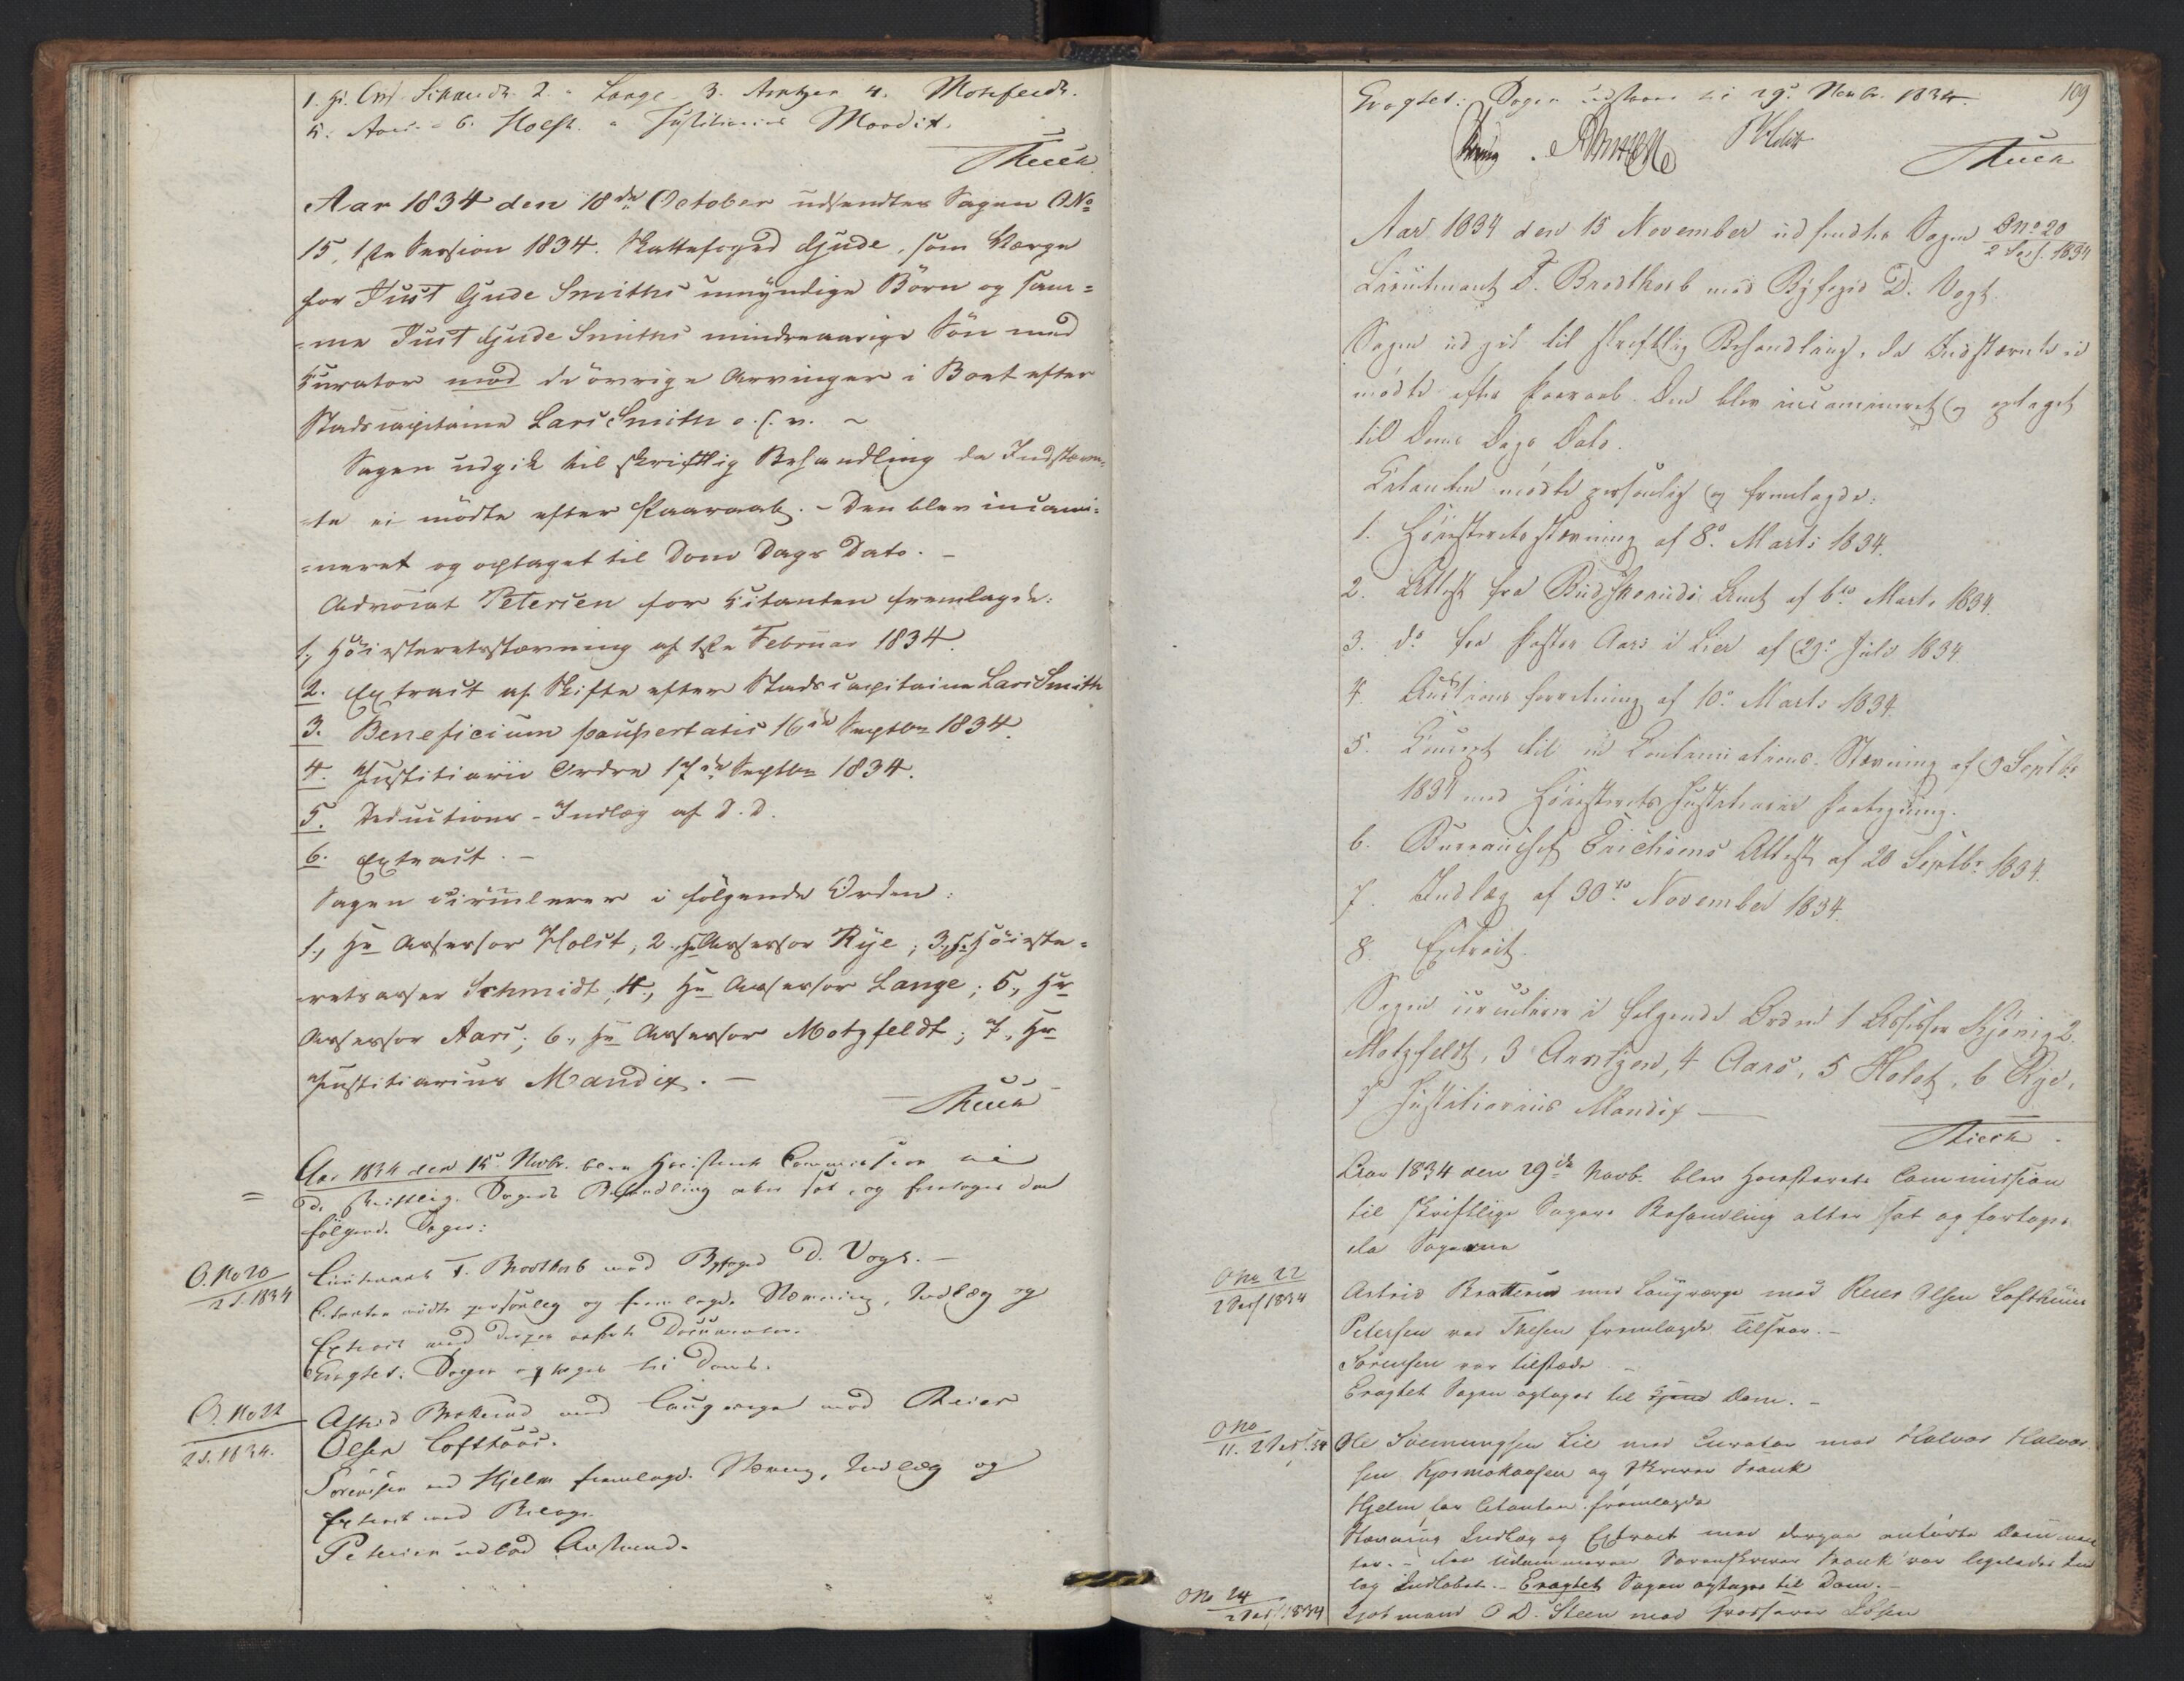 1. Hr. Ass. Schmidt 2. " Lange 3. Arntzen 4. Motzfeldt.
5. Aars - 6. Holst. " Justitiarius Mandix.
Aar 1834 den 18de October udsendtes Sagen ONo
15, 1ste Session 1834. Skattefoged Gjude, som Værge
for Just Gude Smiths umyndige Börn og sam=
=me Just Gjude Smiths mindreaarige Sön med
Curator mod de övrige Arvinger i Boet efter
Stadscapitaine Lars Smith o. s. v. ~
Sagen udgik til skriftlig Behandling da Indstævn=
=te ei mödte efter Paaraab. - Den blev incami=
=neret og optaget til Dom Dags Dato. -
Advocat Petersen for Citanten fremlagde:
1, Höiesteretsstævning af 1ste Februar 1834.
2. Extract af Skifte efter Stadscapitaine Lars Smith
3. Beneficium paupertatis 16de Septbr 1834.
4. Justitiarii Ordre 17de Septbr 1834.
5. Deductions-Indlæg af D. D.
6. Extract. -
Sagen circulerer i fölgende Orden:
1, Hr Assessor Holst, 2, Hr Assessor Rye; 3, Hr Höieste=
=retsasser Schmidt, 4, Hr Assessor Lange; 5, Hr
Assessor Aars; 6, Hr Assessor Motzfeldt; 7, Hr
Justitiarius Mandix. -
Aar 1834 den 15de Novbr. blev Höiesterets Commission til
de skriftlige Sagers Behandling atter sat, og foretoges da
fölgende Sager:
O. No 20
2 S. 1834
Lieutenant T. Brodtkorb mod Byfoged D. Vogt. -
Citanten mödte personlig og fremlagde Stævning, Indlæg og
Extract med derpaa anförte Documenter.
Eragtet: Sagen optages til Doms.
O. No 22
2 S. 1834.
Astrid Bratterud med Laugværge mod Reier
Olsen Lofthuus.
Sörensen ved Hjelm fremlagde Stævning, Indlæg og
Extract med Bilage.
Petersen udbad Anstand.
109
Eragtet: Sagen udstaaer til 29de Novbr. 1834.
Aar 1834 den 15 November udsendtes Sagen O No 20
2 Sess. 1834
Lieutenant T. Brodtkorb mod Byfoged D. Vogt.
Sagen udgik til skriftlig Behandling, da Indstævnte ei
mödte efter Paaraab. Den blev incamineret og optaget
til Doms Dags Dato.
Citanten mödte personlig og fremlagde:
1. Höiesteretsstævning af 8de Marts 1834.
2. Attest fra Buskeruds Amt af 6te Marts 1834.
3. do fra Pastor Aars i Lier af 29de Juli 1834
4. Auctions forretning af 10de Marts 1834.
5. Concept til en Continuations-Stævning af 9 Septbr
1834 med Höiesterets Justitiarii Paategning.
6. Bureauchef Erichsens Attest af 20 Septbr 1834.
7. Indlæg af 30te November 1834.
8. Extract.
Sagen circulerer i følgende Orden 1 Assessor Kjönig 2.
Motzfeldt, 3 Arntzen, 4 Aars, 5 Holst, 6 Rye,
7 Justitiarius Mandix
Aar 1834 den 29de Novb. blev Høiesterets Commission
til skriftlige Sagers Behandling atter sat og foretoges
da Sagerne
ONo 22
2 Sess 1834
Astrid Bratterud med Laugværge mod Reier Olsen Lofthuus
Petersen ved Thesen fremlagde Tilsvar. -
Sörensen var tilstæde. -
Eragtet Sagen optages til Dom. -
O No
11. 2 Sess. 34
Ole Sörmungsen Lie med Curator mod Halvor Halvor
sen og Skriver Frank
Hjelm for Citanten fremlagde
Stævning Indlæg og Extract med derpaa anførte Documen
ter. - Fra Sorenskriver Frank var ligeledes Ind
læg indløbet. - Eragtet Sagen optages til Dom. -
O No 24
2 Sess 1834
O D. Steen mod Grosserer Ibsen